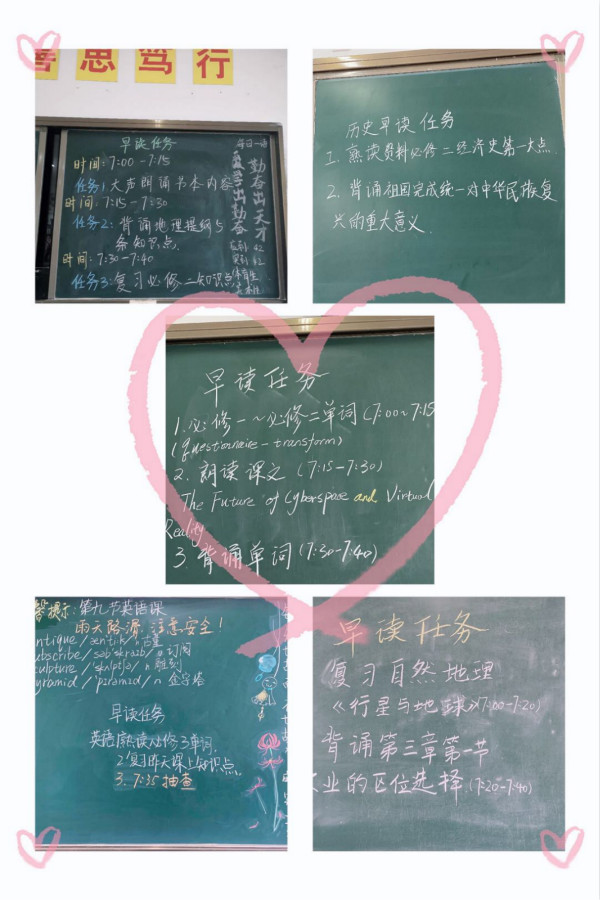 善思笃行
早读任务
时间:7:00-7:15
任务1:大声朗诵书本内容
时间:7:15-7:30
任务2:背诵地理提纲5
条知识点.
时间:7:30-7:40
任务3:复习必修二知识点
每日一语
勤奋出天才
历史早读任务
1. 熟读资料必修二经济史第一大点.
2. 背诵祖国完成统一对中华民族复
兴的重大意义.
早读任务
1.必修一~必修二单词(7:00~7:15
(questionnaire-transform)
2. 朗读课文 (7:15-7:30)
The Future of Cyberspace and Virtual
Reality
3.背诵单词(7:30-7:40)
提示:第九节英语课
雨天路滑,注意安全!
ntique/æn'ti:k/n古董
ubscribe/səb'skraɪb/v订阅
culpture/'skʌlptʃə/n雕刻
yramid/'pɪrəmɪd/n金字塔
早读任务
英语1熟读必修3单词.
2复习昨天课上知识点.
3. 7:35 抽查
早读任务
复习自然地理
《行星与地球》(7:00-7:20)
背诵第三章第一节
业的区位选择(7:20-7:40)